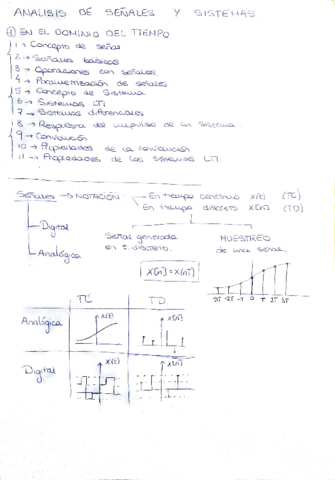 ANALISIS DE SEÑALES Y SISTEMAS
① EN EL DOMINIO DEL TIEMPO
1 → Concepto de señal
2 → Señales básicas
3 → Operaciones con señales
4 → Parametrización de señales
5 → Concepto de Sistema
6 → Sistemas LTI
7 → Sistemas diferenciales
8 → Respuesta al impulso de un sistema
9 → Convolución
10 → Propiedades de la convolución
11 → Propiedades de los sistemas LTI
Señales → NOTACIÓN
En tiempo continuo x(t) (TC)
En tiempo discreto x[n] (TD)
Digital
Analógica
Señal generada
en t. discreto.
MUESTREO
de una señal.
x[n] = x(nT)
-3T -2T -T 0 T 2T 3T
TC TD
Analógica x(t) x[n]
Digital x(t) x[n]